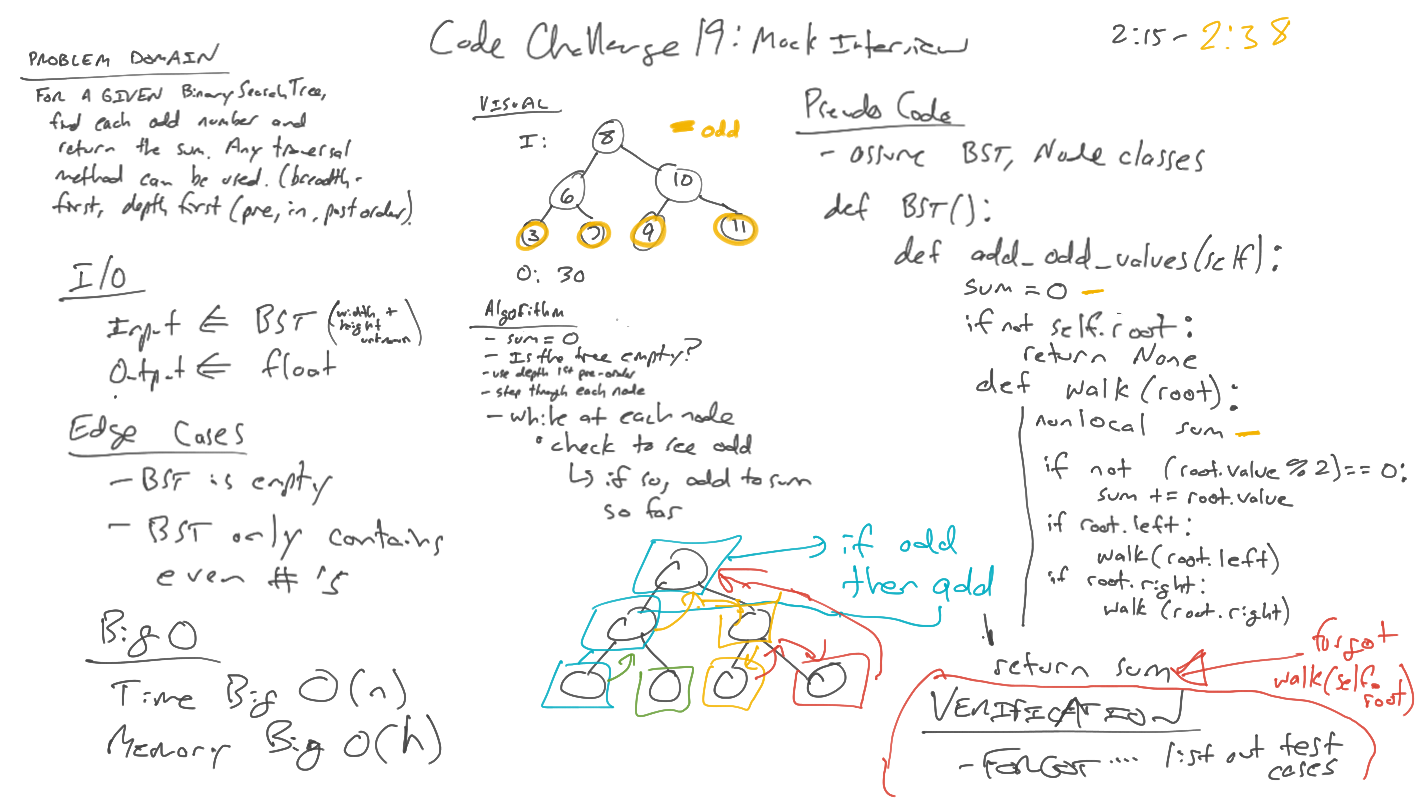 Code Challenge 19: Mock Interview
2:15 - 2:38
PROBLEM DOMAIN
FOR A GIVEN Binary Search Tree,
find each odd number and
return the sum. Any traversal
method can be used. (breadth-
first, depth first (pre, in, post order)
I/O
Input ⇐ BST (width + height unknown)
Output ⇐ float
Edge Cases
- BST is empty
- BST only contains
even #'s
Big O
Time Big O(n)
Memory Big O(h)
VISUAL
I:
= odd
8
6
10
3
7
9
11
O: 30
Algorithm
- sum = 0
- Is the tree empty?
- use depth 1st pre-order
- step though each node
- while at each node
• check to see odd
↳ if so, add to sum
so far
if odd
then add
Pseudo Code
- assume BST, Node classes
def BST():
def add_odd_values(self):
sum = 0
if not self.root:
return None
def walk(root):
nonlocal sum
if not (root.value % 2) == 0:
sum += root.value
if root.left:
walk(root.left)
if root.right:
walk(root.right)
return sum
forgot
walk(self.
root)
VERIFICATION
- FORGOT .... list out test
cases